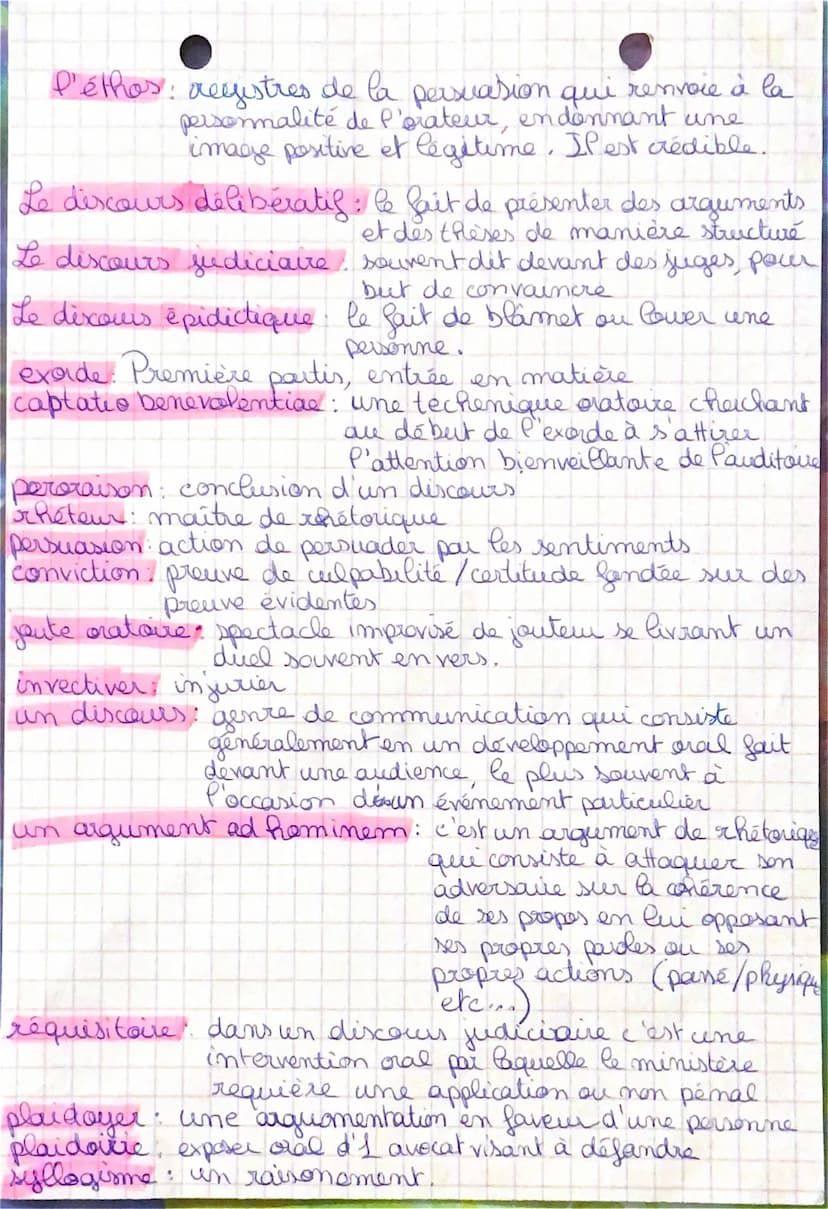 l'éthos : registres de la persuasion qui renvoie à la
personnalité de l'orateur, en donnant une
image positive et légitime. Il est crédible.
Le discours délibératif : le fait de présenter des arguments
et des thèses de manière structuré
Le discours judiciaire : souvent dit devant des juges, pour
but de convaincre
Le discours épidictique : le fait de blâmet ou louer une
personne.
exorde : Première partis, entrée en matière
captatio benevolentiae : une techenique oratoire cherchant
au début de l'exorde à s'attirer
l'attention bienveillante de l'auditoire
peroraison : conclusion d'un discours
rhéteur : maître de rhétorique
persuasion : action de persuader par les sentiments
conviction : preuve de culpabilité / certitude fondée sur des
preuve évidentes
joute oratoire : spectacle improvisé de jouteur se livrant un
duel souvent en vers.
invectiver : injurier
un discours : genre de communication qui consiste
généralement en un développement oral fait
devant une audience, le plus souvent à
l'occasion d'un événement particulier
un argument ad hominem : c'est un argument de rhétorique
qui consiste à attaquer son
adversaire sur la cohérence
de ses propos en lui opposant
ses propres paroles ou ses
propres actions (passé/physique
etc...)
réquisitoire : dans un discours judiciaire c'est une
intervention oral par laquelle le ministère
requière une application ou non pénal
plaidoyer : une arguomentation en faveur d'une personne
plaidoirie : exposer oral d'1 avocat visant à défandre
syllogisme : un raisonement.